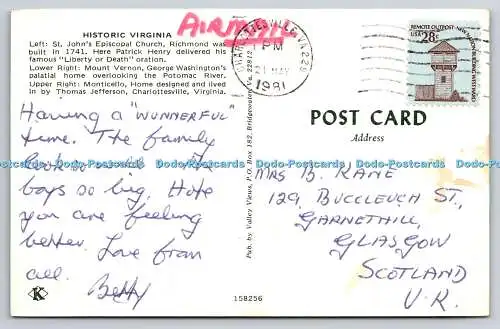 HISTORIC VIRGINIA
Left: St. John's Episcopal Church, Richmond was
built in 1741. Here Patrick Henry delivered his
famous "Liberty or Death" oration.
Lower Right: Mount Vernon, George Washington's
palatial home overlooking the Potomac River.
Upper Right: Monticello, Home designed and lived
in by Thomas Jefferson, Charlottesville, Virginia.
Having a "WUNNERFUL"
time. The family
looks and the
boys so big. Hope
you are feeling
better. Love from
all. Betty
K
Pub. by Valley Views, P.O. Box 182, Bridgewater, Va. 22812
158256
AIRMAIL
CHARLOTTESVILLE, VA 229
PM
21 MAY
1981
REMOTE OUTPOST-NEW NATION BUILDING WESTWARD
USA 28c
POST CARD
Address
MRS B. KANE
129, BUCCLEUCH ST.,
GARNETHILL,
GLASGOW
SCOTLAND
U.K.
Dodo-Postcards Dodo-Postcards Dodo-Postcards Dodo-Postcards Dodo-Postcards Dodo-Postcards